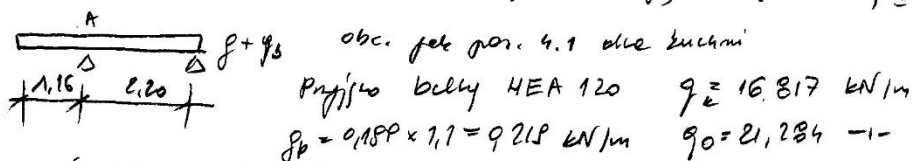 A
g + g_b obc. jak poz. 4.1 dla kuchni
1,16 2,20 Przyjęto belkę HEA 120 q_k = 16.817 kN/m
g_b = 0,199 × 1,1 = 0,219 kN/m q_o = 21,284 -〃-